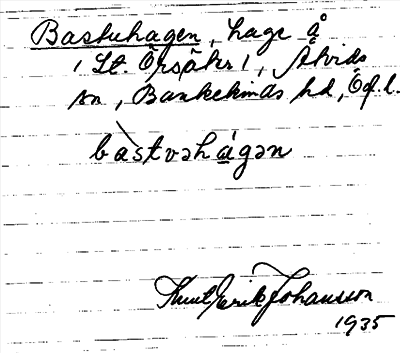 Bastuhagen, hage å
1 St. Örsäkr 1, Åtvids
sn, Bankekinds hd, Ög.l.
bastvəhàgən
Knut Erik Johansson
1935